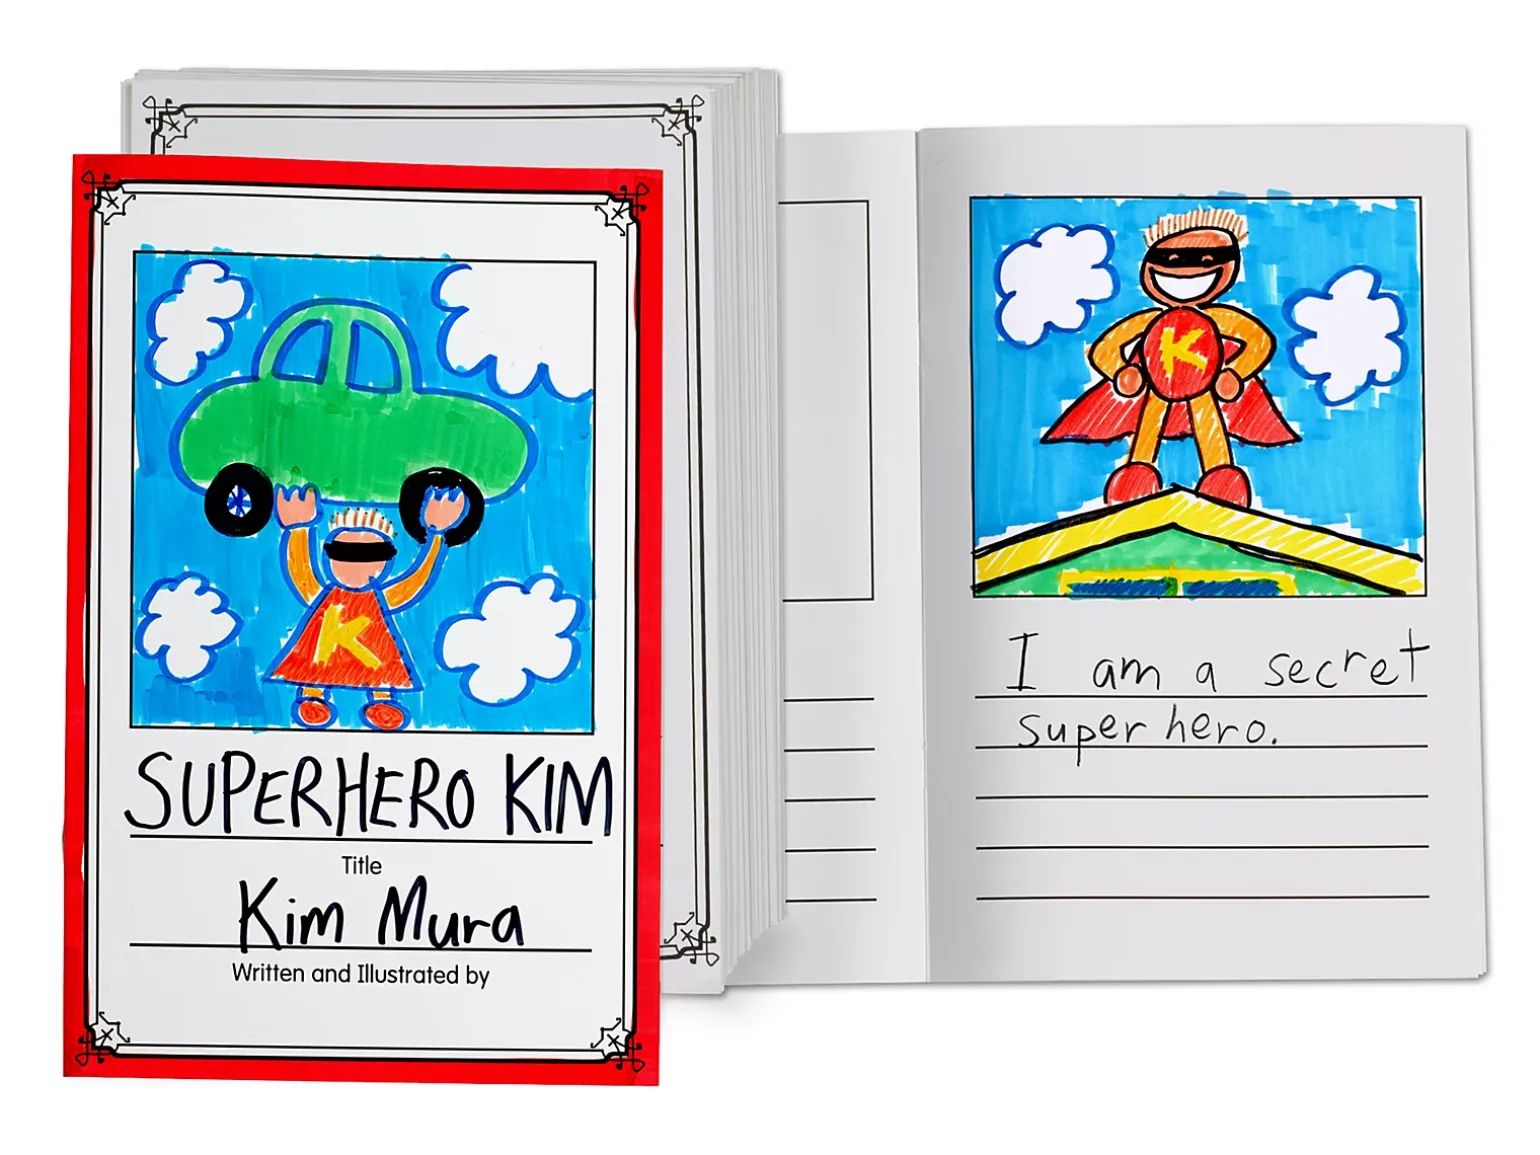 K
SUPERHERO KIM
Title
Kim Mura
Written and Illustrated by
K
I am a secret
super hero.